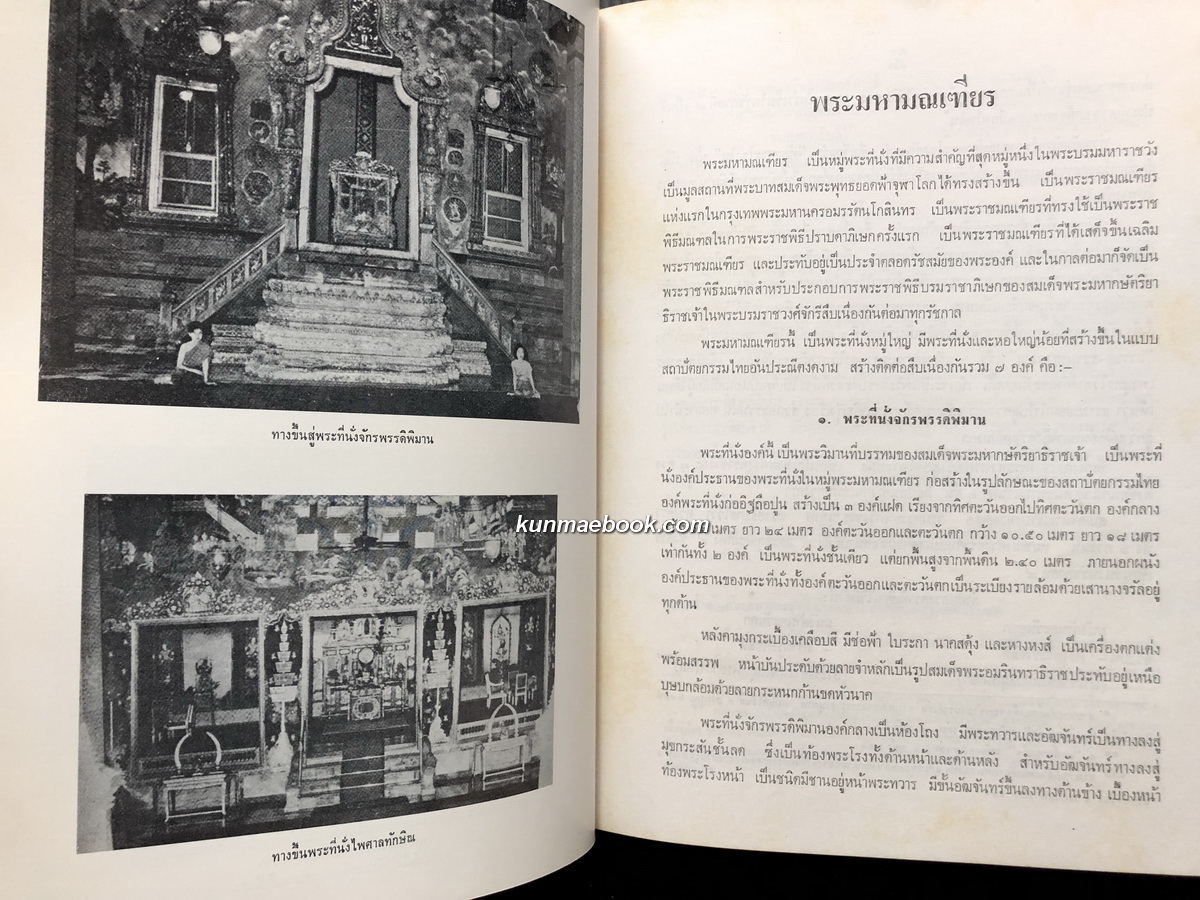 ทางขึ้นสู่พระที่นั่งจักรพรรดิพิมาน
ทางขึ้นพระที่นั่งไพศาลทักษิณ
kunmaebook.com
พระมหามณเฑียร
พระมหามณเฑียร เป็นหมู่พระที่นั่งที่มีความสำคัญที่สุดหมู่หนึ่งในพระบรมมหาราชวัง
เป็นมูลสถานที่พระบาทสมเด็จพระพุทธยอดฟ้าจุฬาโลกได้ทรงสร้างขึ้น เป็นพระราชมณเฑียร
แห่งแรกในกรุงเทพพระมหานครอมรรัตนโกสินทร เป็นพระราชมณเฑียรที่ทรงใช้เป็นพระราช
พิธีมณฑลในการพระราชพิธีปราบดาภิเษกครั้งแรก เป็นพระราชมณเฑียรที่ได้เสด็จขึ้นเฉลิม
พระราชมณเฑียร และประทับอยู่เป็นประจำตลอดรัชสมัยของพระองค์ และในกาลต่อมาก็จัดเป็น
พระราชพิธีมณฑลสำหรับประกอบการพระราชพิธีบรมราชาภิเษกของสมเด็จพระมหากษัตริยา
ธิราชเจ้าในพระบรมราชวงศ์จักรีสืบเนื่องกันต่อมาทุกรัชกาล
พระมหามณเฑียรนี้ เป็นพระที่นั่งหมู่ใหญ่ มีพระที่นั่งและหอใหญ่น้อยที่สร้างขึ้นในแบบ
สถาปัตยกรรมไทยอันประณีตงดงาม สร้างติดต่อสืบเนื่องกันรวม ๗ องค์ คือ :–
๑. พระที่นั่งจักรพรรดิพิมาน
พระที่นั่งองค์นี้ เป็นพระวิมานที่บรรทมของสมเด็จพระมหากษัตริยาธิราชเจ้า เป็นพระที่
นั่งองค์ประธานของพระที่นั่งในหมู่พระมหามณเฑียร ก่อสร้างในรูปลักษณะของสถาปัตยกรรมไทย
องค์พระที่นั่งก่ออิฐถือปูน สร้างเป็น ๓ องค์แฝด เรียงจากทิศตะวันออกไปทิศตะวันตก องค์กลาง
เมตร ยาว ๒๔ เมตร องค์ตะวันออกและตะวันตก กว้าง ๑๐.๕๐ เมตร ยาว ๑๘ เมตร
เท่ากันทั้ง ๒ องค์ เป็นพระที่นั่งชั้นเดียว แต่ยกพื้นสูงจากพื้นดิน ๒.๔๐ เมตร ภายนอกผนัง
องค์ประธานของพระที่นั่งทั้งองค์ตะวันออกและตะวันตกเป็นระเบียงรายล้อมด้วยเสานางจรัลอยู่
ทุกด้าน
หลังคามุงกระเบื้องเคลือบสี มีช่อฟ้า ใบระกา นาคสดุ้ง และหางหงส์ เป็นเครื่องตกแต่ง
พร้อมสรรพ หน้าบันประดับด้วยลายจำหลักเป็นรูปสมเด็จพระอมรินทราธิราชประทับอยู่เหนือ
บุษบกล้อมด้วยลายกระหนกก้านขดหัวนาค
พระที่นั่งจักรพรรดิพิมานองค์กลางเป็นห้องโถง มีพระทวารและอัฒจันทร์เป็นทางลงสู่
มุขกระสันชั้นลด ซึ่งเป็นท้องพระโรงทั้งด้านหน้าและด้านหลัง สำหรับอัฒจันทร์ทางลงสู่
ท้องพระโรงหน้า เป็นชนิดมีชานอยู่หน้าพระทวาร มีขั้นอัฒจันทร์ขึ้นลงทางด้านข้าง เบื้องหน้า